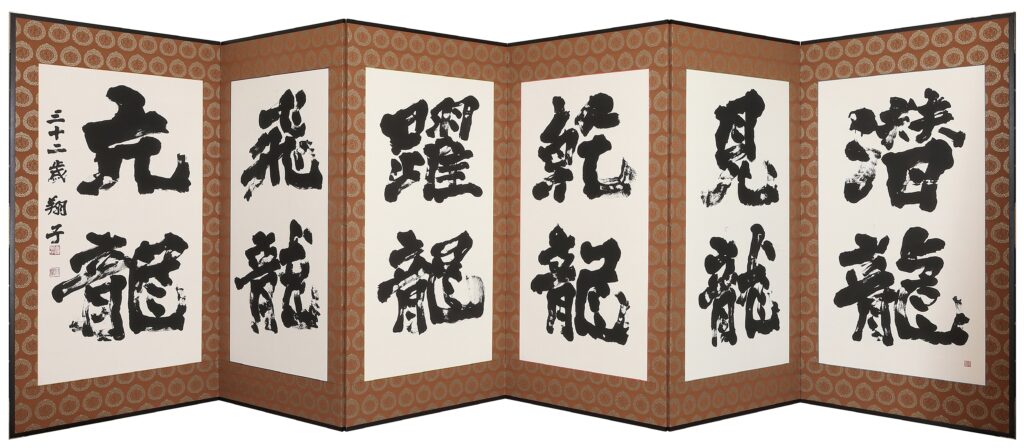 潜龍
見龍
乾龍
躍龍
飛龍
亢龍
三十二歳 翔子